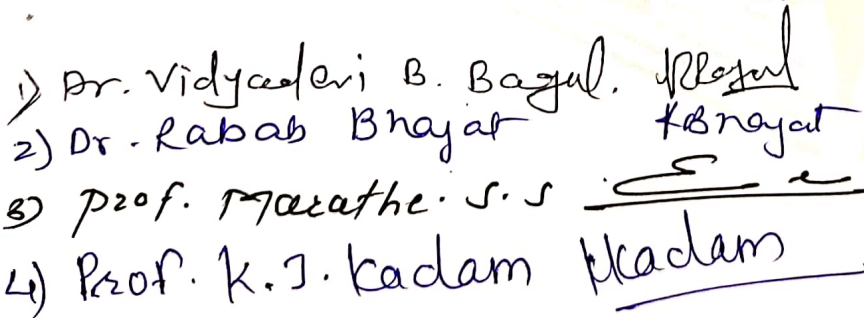 1) Dr. Vidyadevi B. Bagul. Bagul
2) Dr. Rabab Bhajat KBhayat
3) Prof. Marathe. S.S
4) Prof. K.J. Kadam Kadam